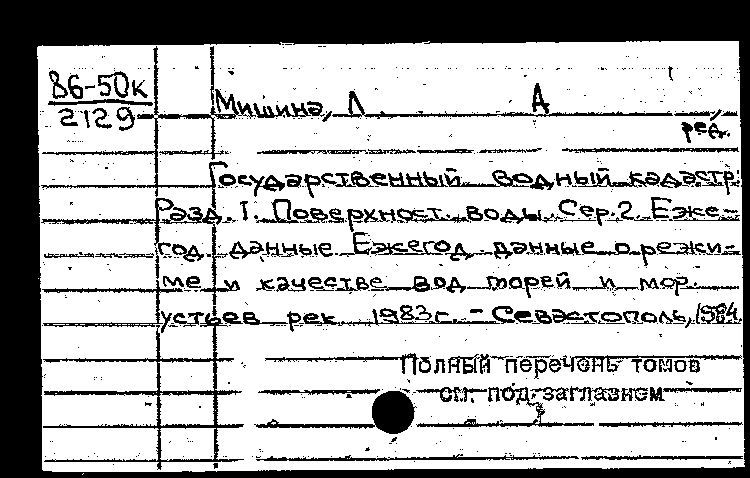 86-50к
2129
Мишина, Л. А
ред.
Государственный водный кадастр.
Разд. I. Поверхност. воды. Сер. 2. Еже-
год. данные Ежегод. данные о режи-
ме и качестве вод морей и мор.
устьев рек 1983г. - Севастополь, 1984
Полный перечень томов
см. под заглавием